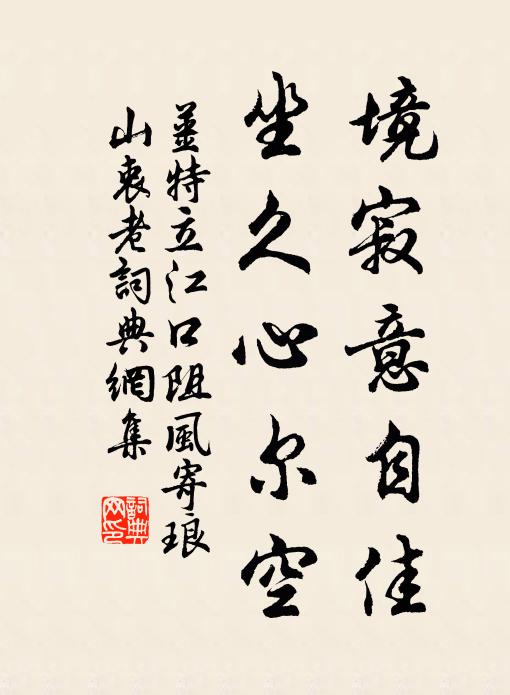 境寂意自佳
坐久心尔空
姜特立江口阻風寄琅
山衷老詞典網集
詞典
网印